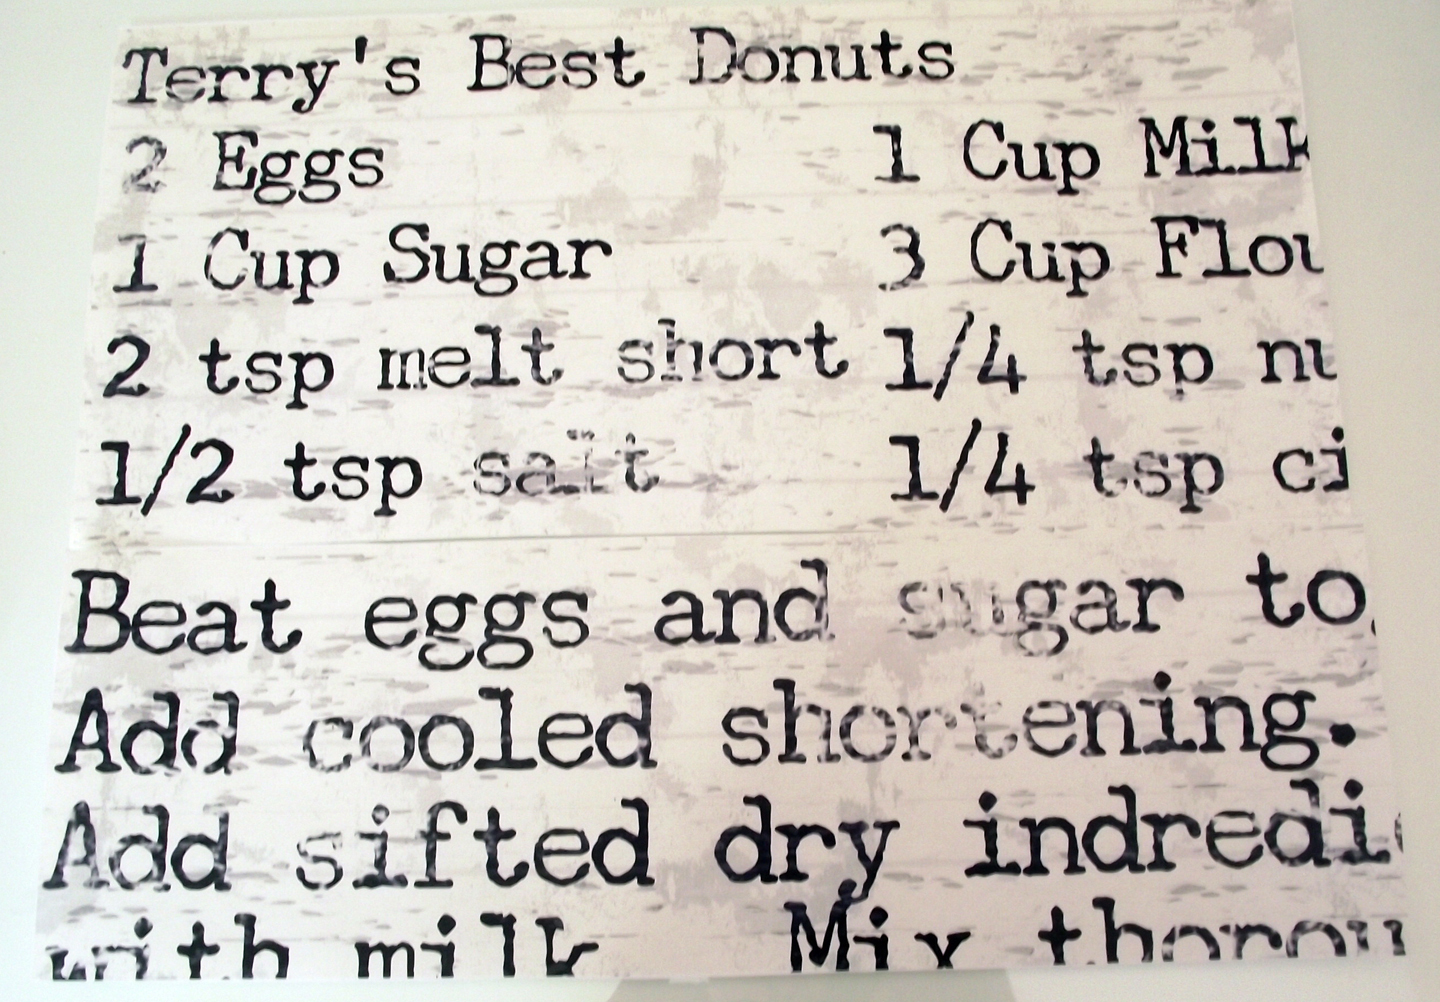 Terry's Best Donuts
2 Eggs 1 Cup Milk
1 Cup Sugar 3 Cup Flou
2 tsp melt short 1/4 tsp nu
1/2 tsp salt 1/4 tsp ci
Beat eggs and sugar to
Add cooled shortening.
Add sifted dry indredi
with milk Mix thorou